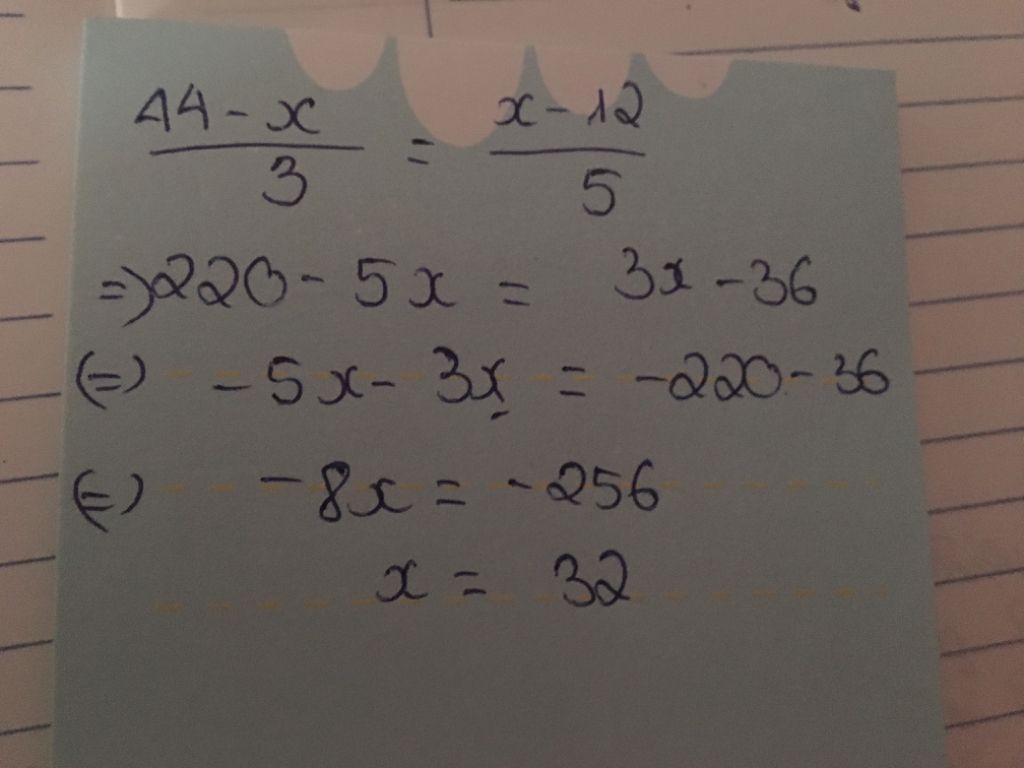 44 - x / 3 = x - 12 / 5
=> 220 - 5x = 3x - 36
(=) - 5x - 3x = -220 - 36
(=) - 8x = - 256
x = 32